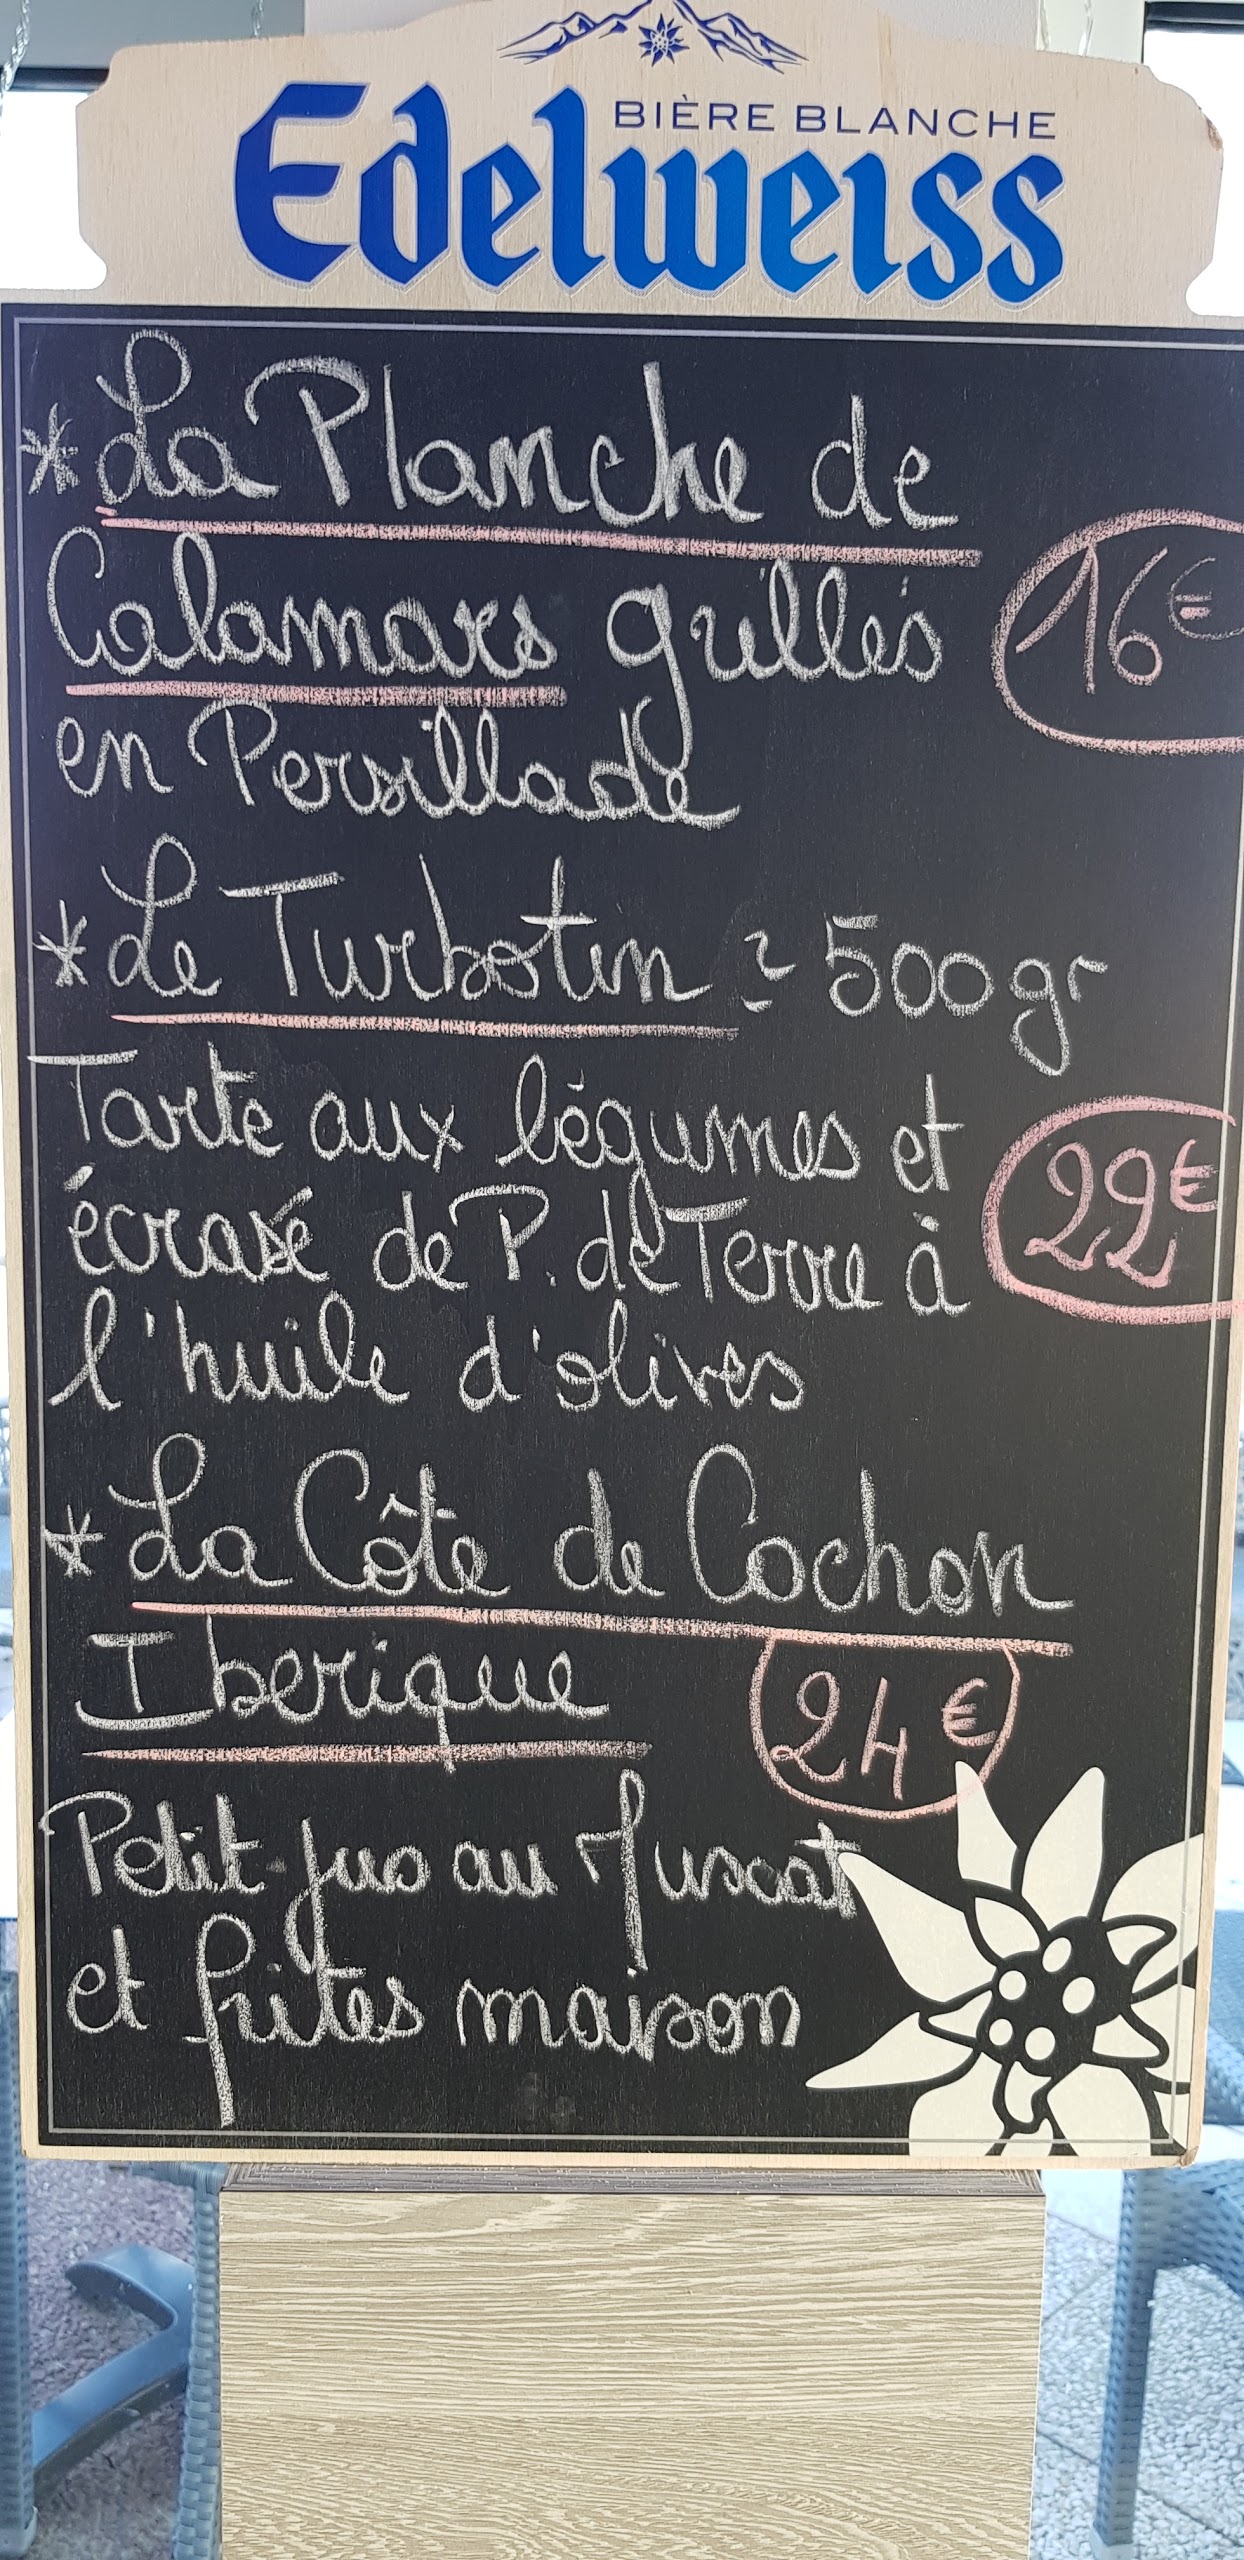 BIÈRE BLANCHE
Edelweiss
* La Planche de
Calamars grillés
16€
en Persillade
* Le Turbotin ≈ 500gr
Tarte aux légumes et
22€
écrasé de P. de Terre à
l'huile d'olives
* La Côte de Cochon
Iberique
24€
Petit jus au Muscat
et frites maison